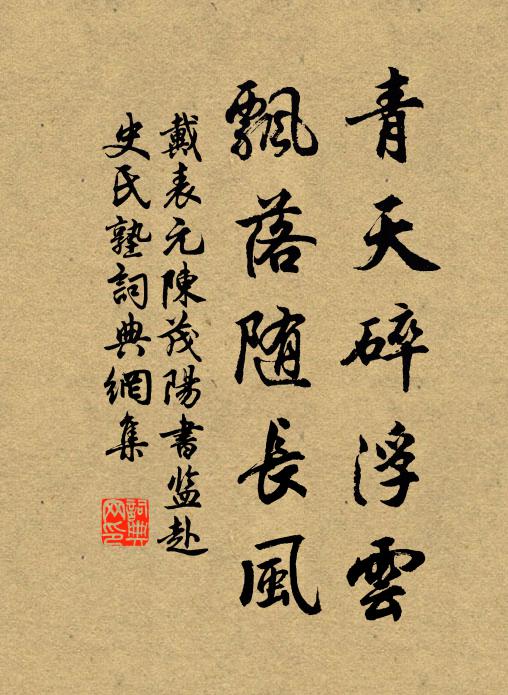 青天碎浮雲
飄落随長風
戴表元陳茂陽書监赴
史氏塾詞典網集
詞典网印